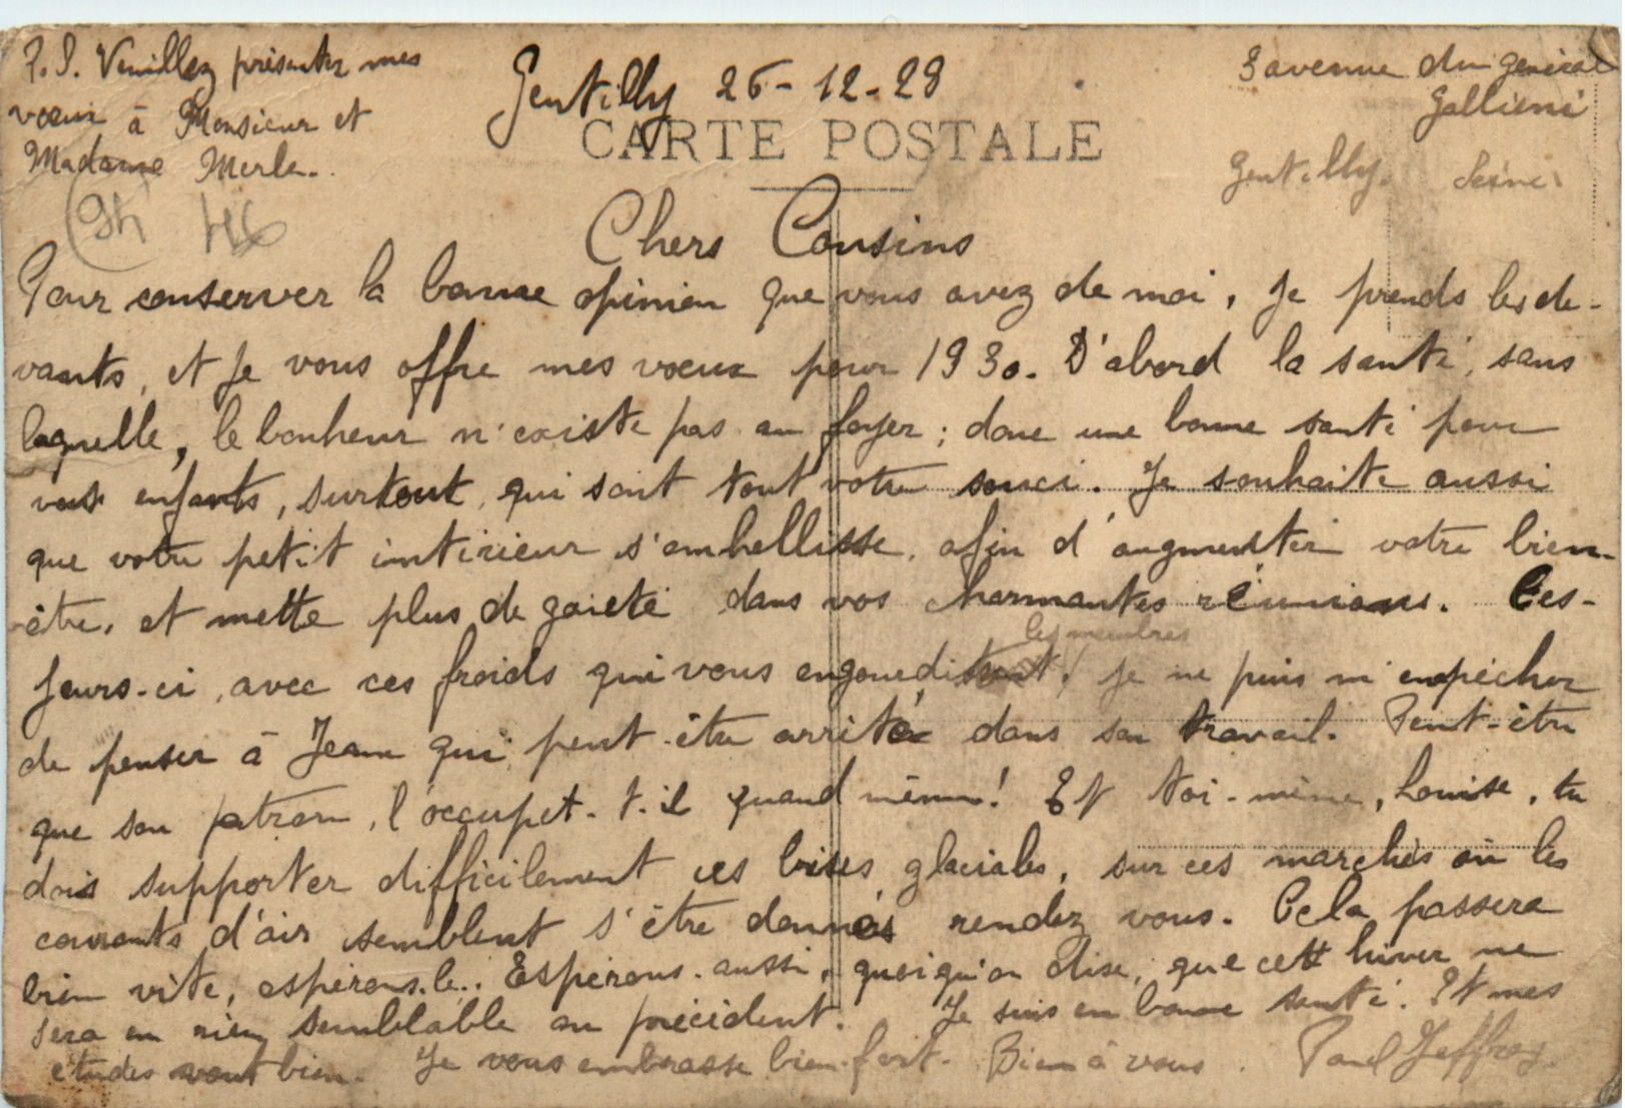 P.S. Veuillez présenter mes
voeux à Monsieur et
Madame Merle.
Gentilly 26-12-29
3 avenue du général
Gallieni
Gentilly. Seine.
CARTE POSTALE
Chers Cousins
Pour conserver la bonne opinion que vous avez de moi, je prends les de-
vants, et je vous offre mes voeux pour 1930. D'abord la santé, sans
laquelle, le bonheur n'existe pas au foyer ; donc une bonne santé pour
vos enfants, surtout, qui sont tout votre souci. Je souhaite aussi
que votre petit intérieur s'embellisse, afin d'augmenter votre bien-
être, et mette plus de gaieté dans vos charmantes réunions. Ces-
jours-ci, avec ces froids qui vous les membres, je ne puis m'empêcher
de penser à Jean qui, peut-être arrêté dans son travail. Peut-être
que son patron, l'occupet-t-il quand même! Et toi-même, Louise, tu
dois supporter difficilement ces bises glaciales, sur ces marchés où les
courants d'air semblent s'être donnés rendez vous. Cela passera
bien vite, espérons-le.. Espérons-aussi, quoiqu'on dise, que cet hiver ne
sera en rien semblable au précédent. Je suis en bonne santé. Et mes
études vont bien. Je vous embrasse bien fort. Bien à vous. Paul Jeffroy.